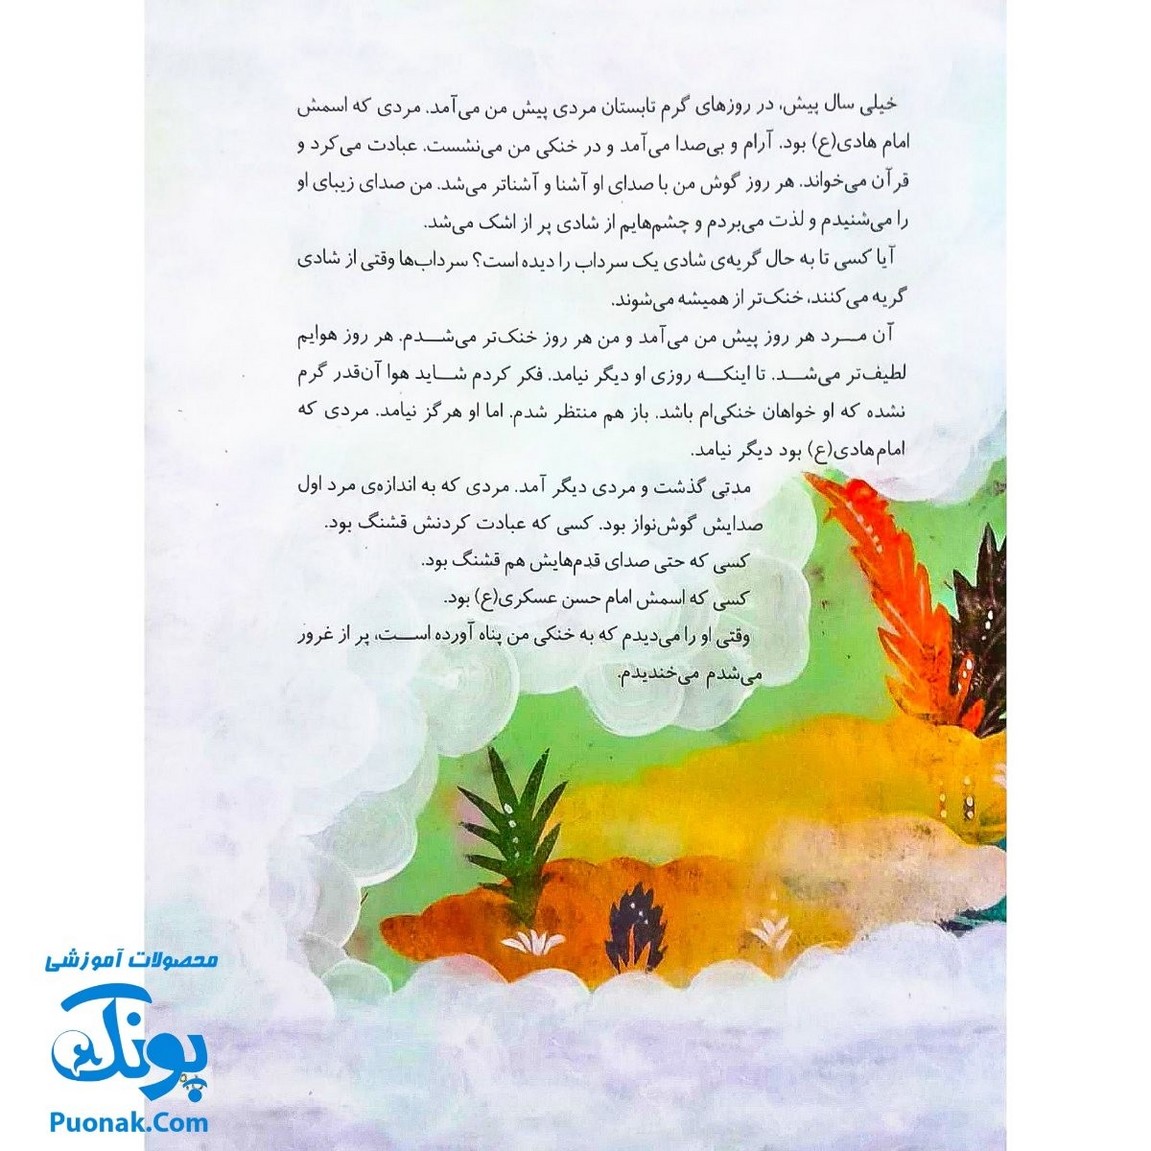 خیلی سال پیش، در روزهای گرم تابستان مردی پیش من می‌آمد. مردی که اسمش
امام هادی(ع) بود. آرام و بی‌صدا می‌آمد و در خنکی من می‌نشست. عبادت می‌کرد و
قرآن می‌خواند. هر روز گوش من با صدای او آشنا و آشناتر می‌شد. من صدای زیبای او
را می‌شنیدم و لذت می‌بردم و چشم‌هایم از شادی پر از اشک می‌شد.
آیا کسی تا به حال گریه‌ی شادی یک سرداب را دیده است؟ سرداب‌ها وقتی از شادی
گریه می‌کنند، خنک‌تر از همیشه می‌شوند.
آن مـــرد هر روز پیش من می‌آمد و من هر روز خنک‌تر می‌شـــدم. هر روز هوایم
لطیف‌تر می‌شـــد. تا اینکـــه روزی او دیگر نیامد. فکر کردم شـــاید هوا آن‌قدر گرم
نشده که او خواهان خنکی‌ام باشد. باز هم منتظر شدم. اما او هرگز نیامد. مردی که
امام‌هادی(ع) بود دیگر نیامد.
مدتی گذشت و مردی دیگر آمد. مردی که به اندازه‌ی مرد اول
صدایش گوش‌نواز بود. کسی که عبادت کردنش قشنگ بود.
کسی که حتی صدای قدم‌هایش هم قشنگ بود.
کسی که اسمش امام حسن عسکری(ع) بود.
وقتی او را می‌دیدم که به خنکی من پناه آورده اســـت، پر از غرور
می‌شدم می‌خندیدم.
محصولات آموزشی
پونک
Puonak.Com